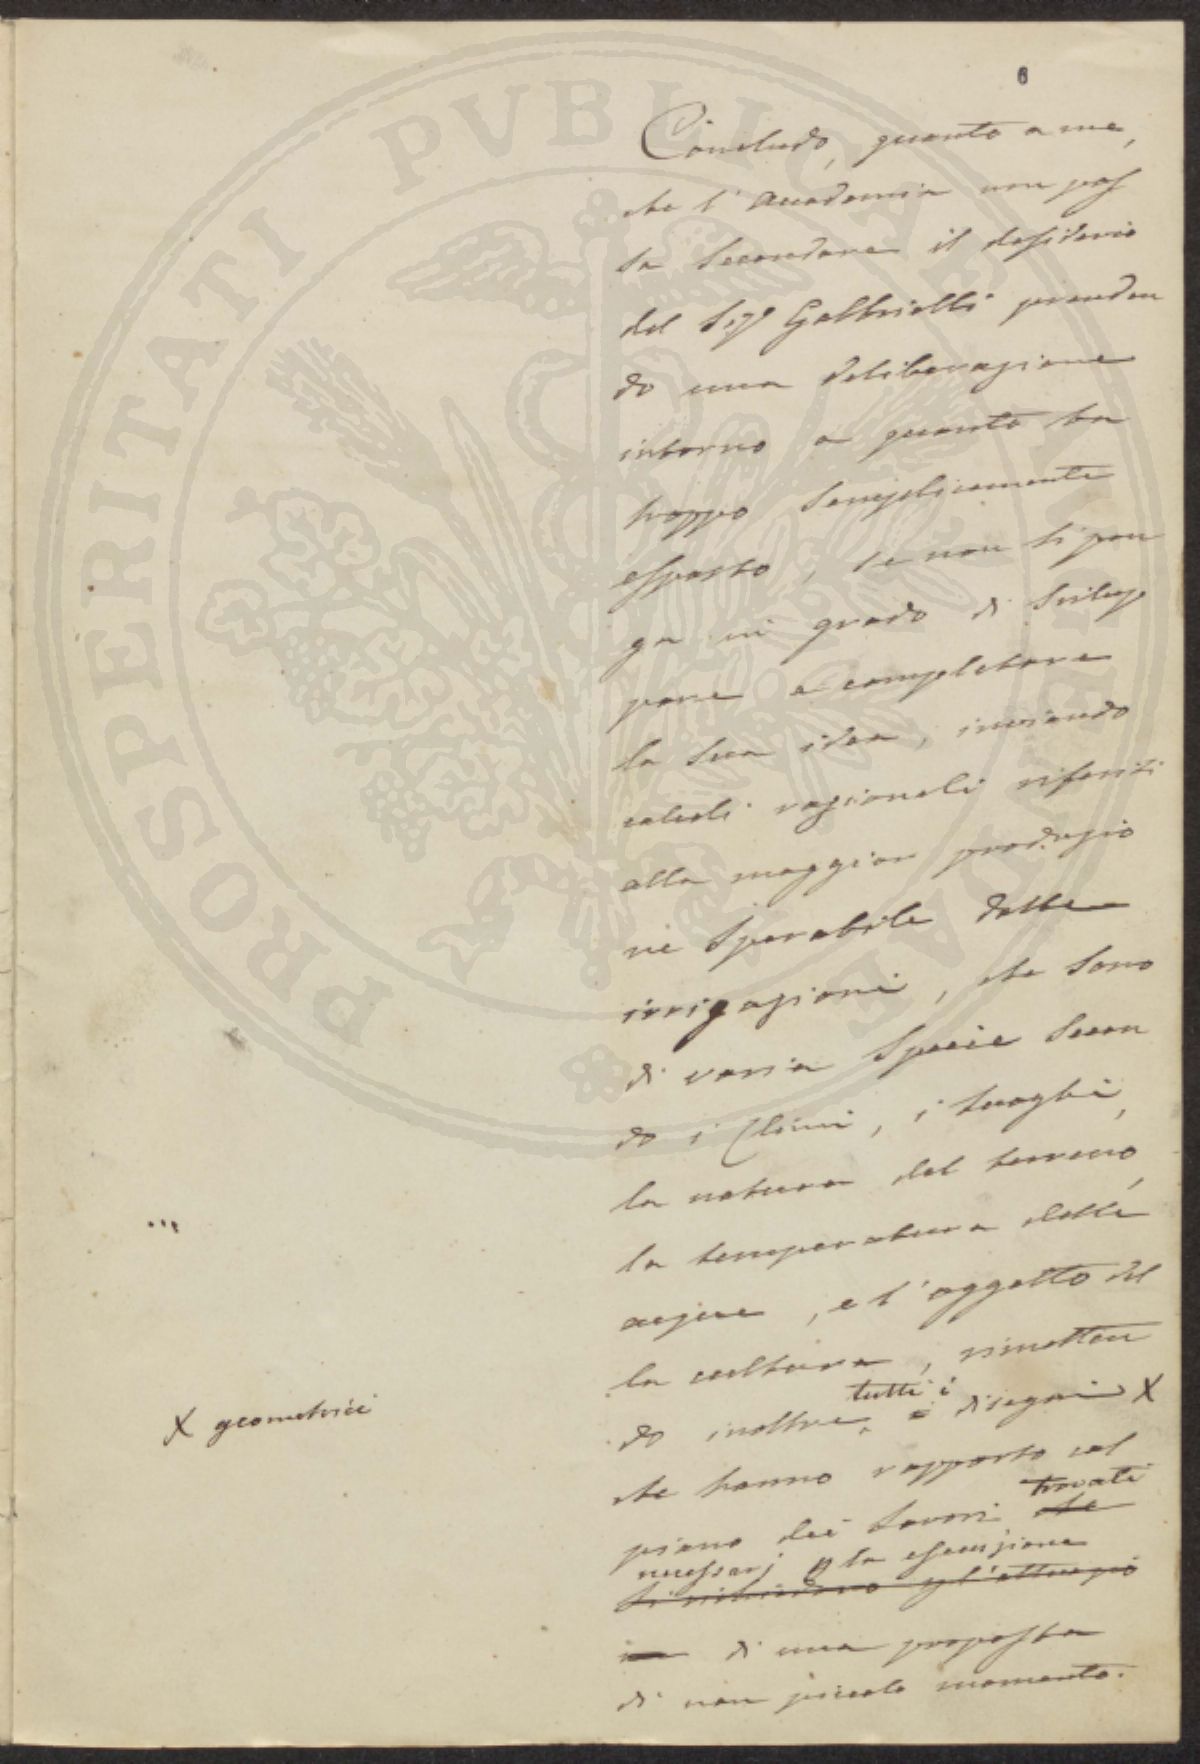 6
Concludo, quanto a me,
che l'Accademia non pos
sa secondare il desiderio
del Sig.r Gabbrielli prenden
do una deliberazione
intorno a quanto ha
troppo semplicemente
esposto, se non si pon
ga in grado di svilup
pare e completare
la sua idea, inviando
calcoli ragionali riferiti
alla maggior produzio
ne sperabile dalle
irrigazioni, che sono
di varia specie secon
do i Climi, i luoghi,
la natura del terreno,
la temperatura delle
acque, e l'oggetto del
la cultura, rimetten
do inoltre, tutti i disegni X
X geometrici
che hanno rapporto col
piano dei lavori trovati che
necessarj p la esecuzione
si richiedono p l'attuazio
di una proposta
di non piccolo momento.
PROSPERITATI PVBLICAE AVGENDAE